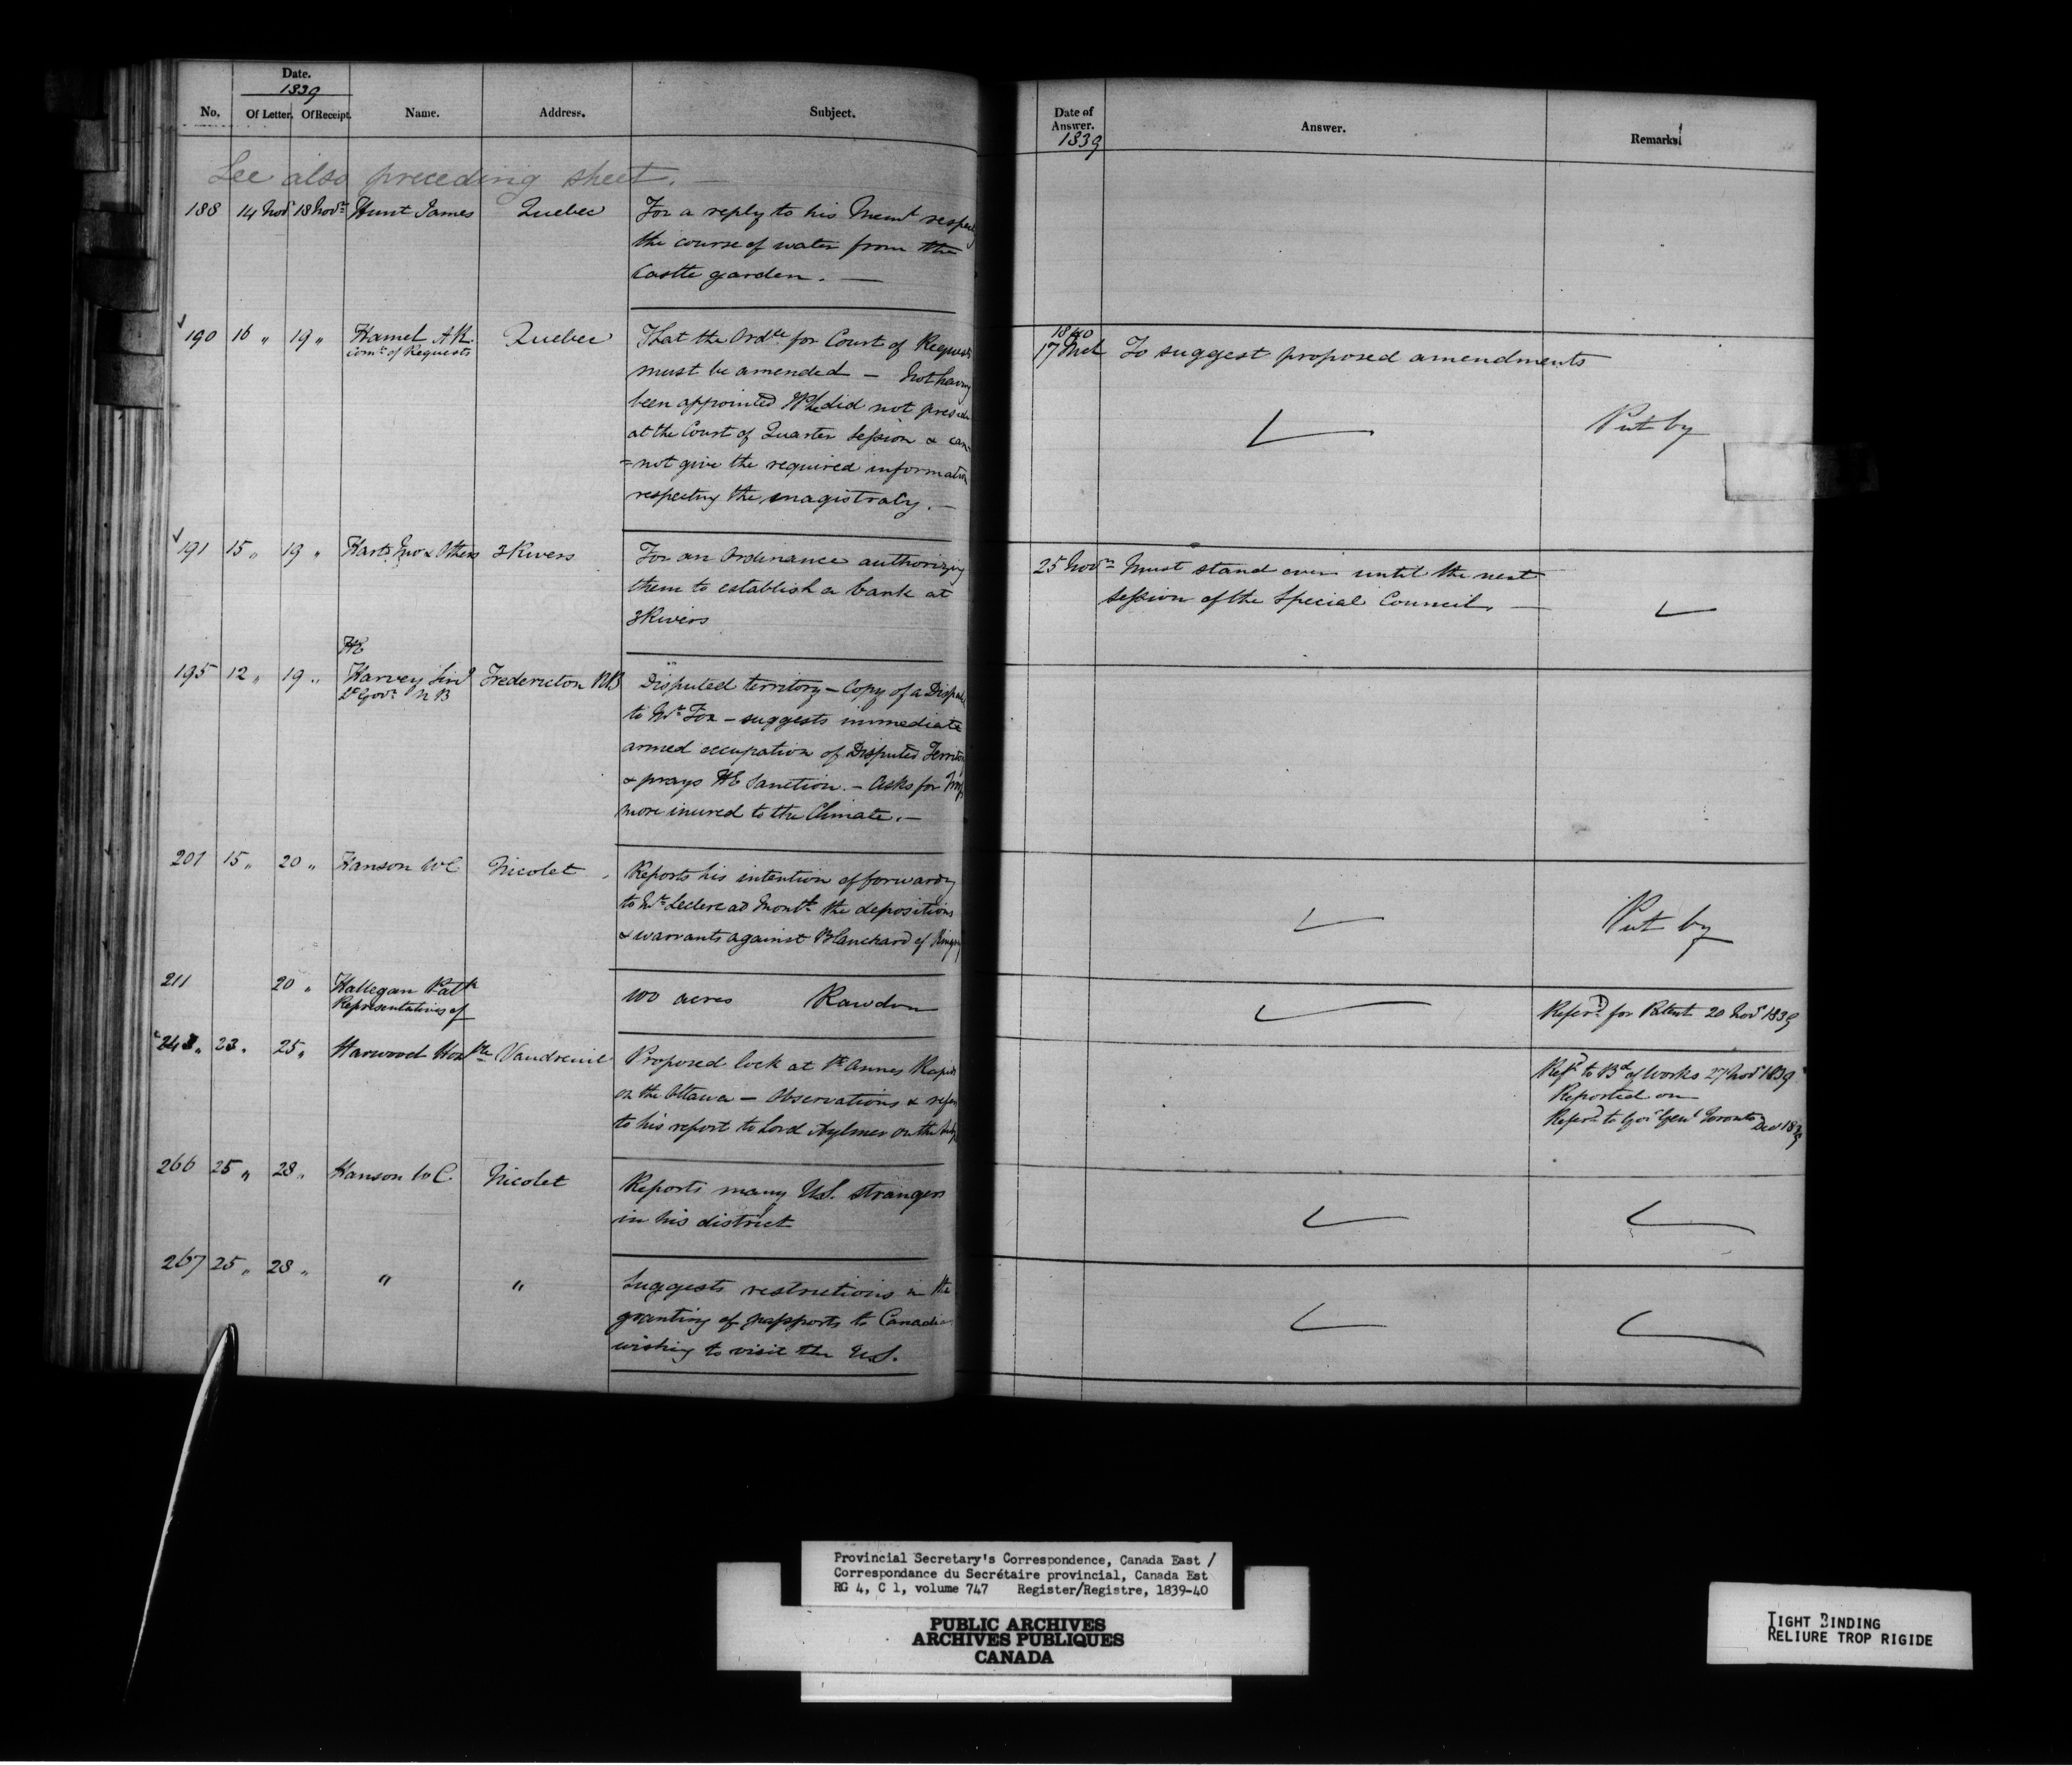 Date.
1839
No. Of Letter. Of Receipt. Name. Address. Subject.
Date of Answer. 1839 Answer. Remarks
See also preceding sheet. —
188 14 Novr 18 Novr Hunt James Quebec For a reply to his Meml
the course of water from the
Castle garden. —
190 16 " 19 " Hamel A R. Quebec That the Ordce for Court of Requests
Comr of Requests
must be amended — Not having
been appointed he did not preside
at the Court of Quarter Session & can=
=not give the required information
respecting the magistracy. —
1840
17 Mch To suggest proposed amendments
Put by
191 15 " 19 " Harts Jno & Others 3 Rivers For an Ordinance authorizing
them to establish a bank at
3 Rivers
25 Novr Must stand over until the next
session of the Special Council. —
HE
195 12 " 19 " Harvey Sir J Fredericton NB Disputed territory — Copy of a
Lt Govr N B
to Mr Fox — suggests immediate
armed occupation of Disputed Territory
& prays HE Sanction. — Asks for
more inured to the Climate. —
201 15 " 20 " Hanson W C Nicolet Reports his intention of forwardg
to Mr Leclere at Montl the depositions
& warrants against Blanchard of
Put by
211 20 " Hallegan Patk 100 acres Rawdon
Representatives of
Referd for Patent 20 Novr 1839
243 " 23 " 25 " Harwood Honble Vaudreuil Proposed lock at St Annes Rapids
on the Ottawa — Observations & refers
to his report to Lord Aylmer on the
Refd to Bd of Works 27 Novr 1839
Reported on
Referd to Govr Genl Toronto Decr 1839
266 25 " 28 " Hanson W C Nicolet Reports many U.S. strangers
in his district
267 25 " 28 " " " Suggests restrictions in the
granting of passports to
wishing to visit the U.S.
Provincial Secretary's Correspondence, Canada East /
Correspondance du Secrétaire provincial, Canada Est
RG 4, C 1, volume 747 Register/Registre, 1839-40
PUBLIC ARCHIVES
ARCHIVES PUBLIQUES
CANADA
TIGHT BINDING
RELIURE TROP RIGIDE